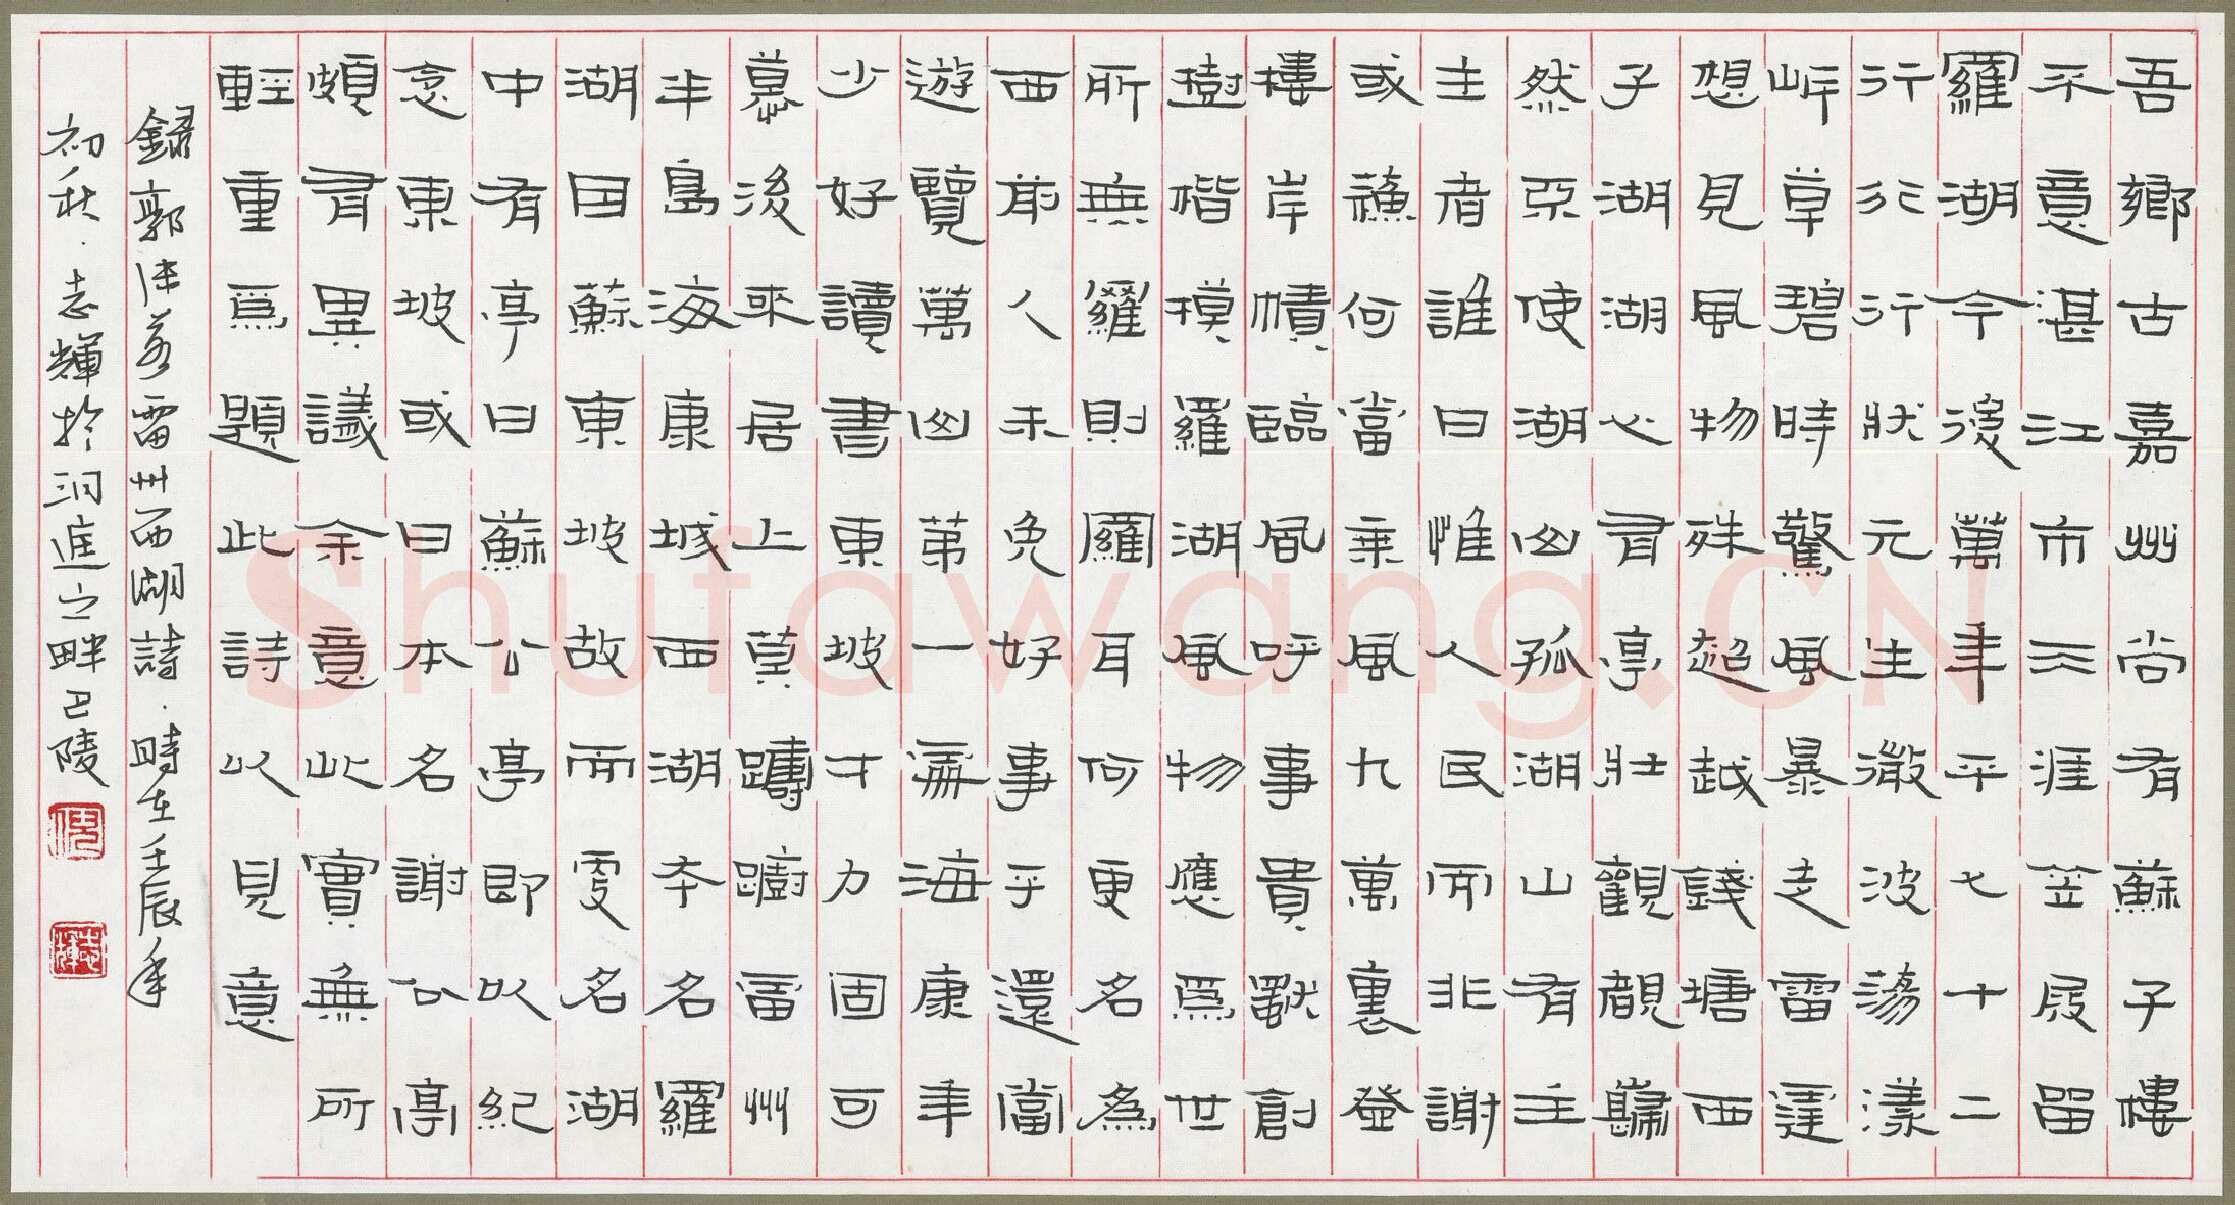 吾鄉古嘉州尚有蘇子樓
不意湛江市天涯笠屐留
羅湖今後萬年平七十二
行行行狀元生微波蕩漾
岸草碧時驚風暴走雷霆
想見風物殊超越錢塘西
子湖湖心有亭壯觀覩歸
然亞使湖山孤山湖有主
主者誰曰惟人民而非謝
或蘓何當乘風九萬裏登
樓岸幘臨風呼事貴獸創
樹楷模羅湖風物應爲世
所無羅則羅耳何更名為
西前人未免好事乎還當
遊覽萬山第一海康年
少好讀書東坡才力固可
慕後來居上莫躊躕雷州
半島海康城西湖本名羅
湖因蘇東坡故而更名湖
中有亭曰蘇公亭即以紀
念東坡或曰本名謝公亭
頗有異議余意此實無所
輕重爲題此詩以見意
錄郭沫若雷州西湖詩·時在壬辰年
初秋·志輝於洞庭之畔巴陵
志輝
Shufawang.CN